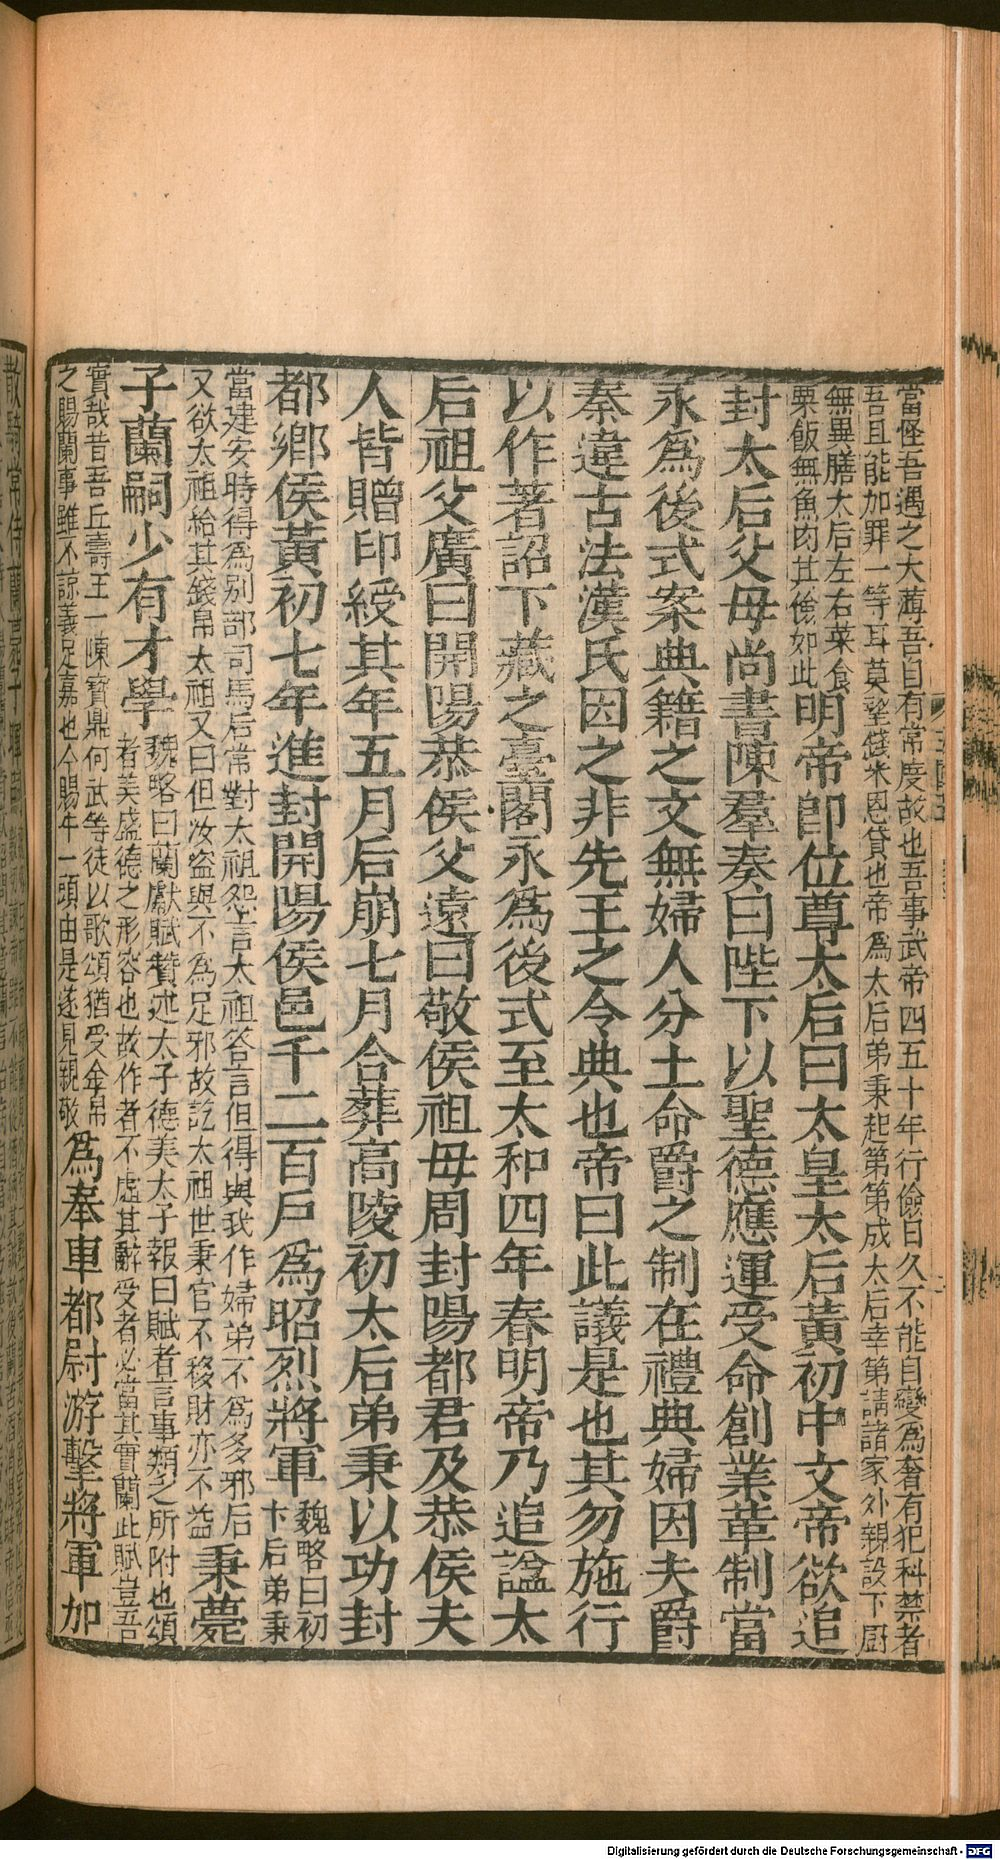 當怪吾遇之大薄吾自有常度故也吾事武帝四五十年行儉日久不能自變為奢有犯科禁者
吾且能加罪一等耳莫望錢米恩貸也帝為太后弟秉起第第成太后幸第請諸家外親設下厨
無異膳太后左右菜食
粟飯無魚肉其儉如此
明帝即位尊太后曰太皇太后黃初中文帝欲追
封太后父母尚書陳羣奏曰陛下以聖德應運受命創業革制當
永為後式案典籍之文無婦人分土命爵之制在禮典婦因夫爵
秦違古法漢氏因之非先王之令典也帝曰此議是也其勿施行
以作著詔下藏之臺閣永為後式至太和四年春明帝乃追諡太
后祖父廣曰開陽恭侯父遠曰敬侯祖母周封陽都君及恭侯夫
人皆贈印綬其年五月后崩七月合葬高陵初太后弟秉以功封
都鄉侯黃初七年進封開陽侯邑千二百戶為昭烈將軍
魏略曰初
卞后弟秉
當建安時得為別部司馬后常對太祖怨言太祖答言但得與我作婦弟不為多邪后
又欲太祖給其錢帛太祖又曰但汝盜與不為足邪故訖太祖世秉官不移財亦不益
秉薨
子蘭嗣少有才學
魏略曰蘭獻賦贊述太子德美太子報曰賦者言事類之所附也頌
者美盛德之形容也故作者不虛其辭受者必當其實蘭此賦豈吾
實哉昔吾丘壽王一陳寶鼎何武等徒以歌頌猶受金帛
之賜蘭事雖不諒義足嘉也今賜牛一頭由是遂見親敬
為奉車都尉游擊將軍加
Digitalisierung gefördert durch die Deutsche Forschungsgemeinschaft - DFG